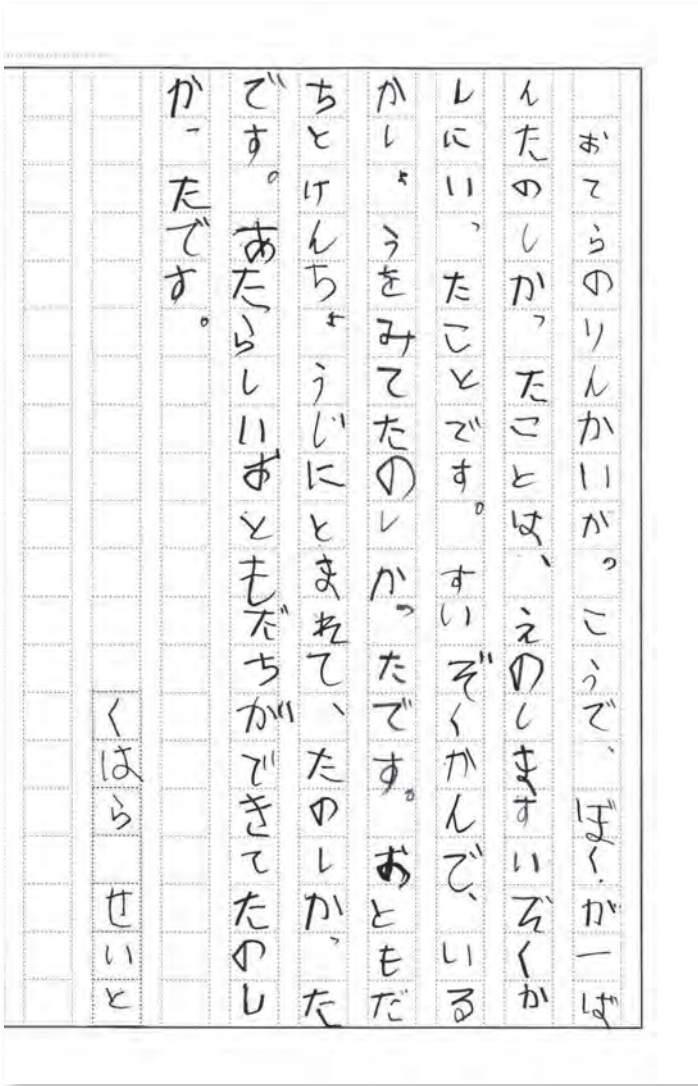 おてらのりんかいがっこうで、ぼくが一ば
んたのしかったことは、えのしますいぞくか
んにいったことです。すいぞくかんで、いる
かしょうをみてたのしかったです。おともだ
ちとけんちょうじにとまれて、たのしかった
です。あたらしいおともだちができてたのし
かったです。
くはら せいと